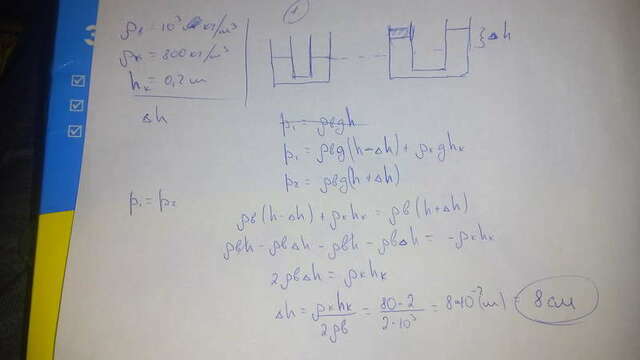 1
ρв = 10³ кг/m³
ρк = 800 кг/m³
hк = 0,2 m
Δh
}Δh
p₁ = ρвgh
p₁ = ρвg(h-Δh) + ρкghк
p₂ = ρвg(h+Δh)
p₁ = p₂
ρв(h-Δh) + ρкhк = ρв(h+Δh)
ρвh - ρвΔh - ρвh - ρвΔh = -ρкhк
2ρвΔh = ρкhк
Δh = ρкhк / 2ρв = 80·2 / 2·10³ = 8·10⁻²(m) = 8 см